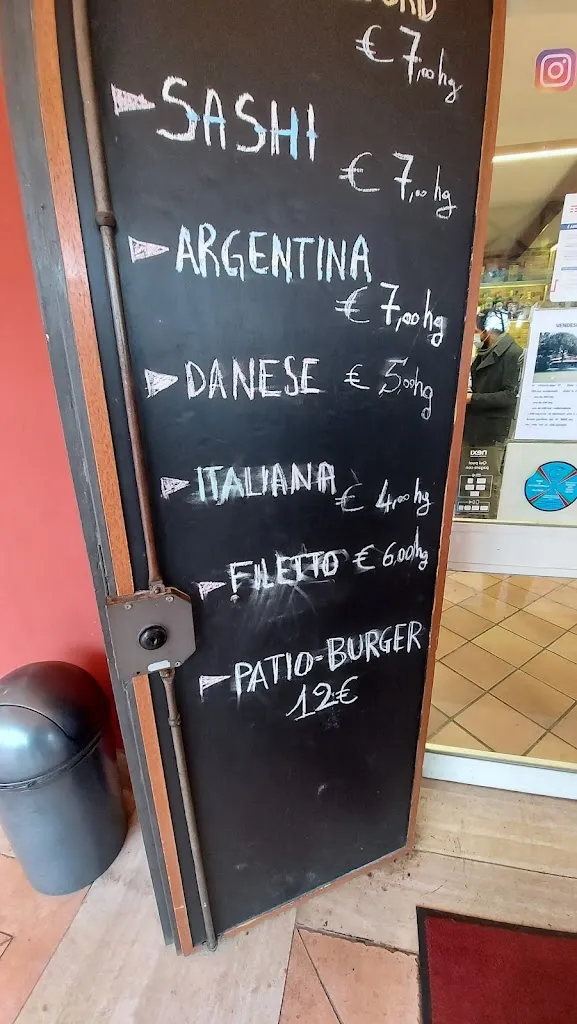 € 7,00 hg
SASHI
€ 7,00 hg
ARGENTINA
€ 7,00 hg
DANESE € 5,00 hg
ITALIANA € 4,00 hg
FILETTO € 6,00/hg
PATIO-BURGER
12€
nexi